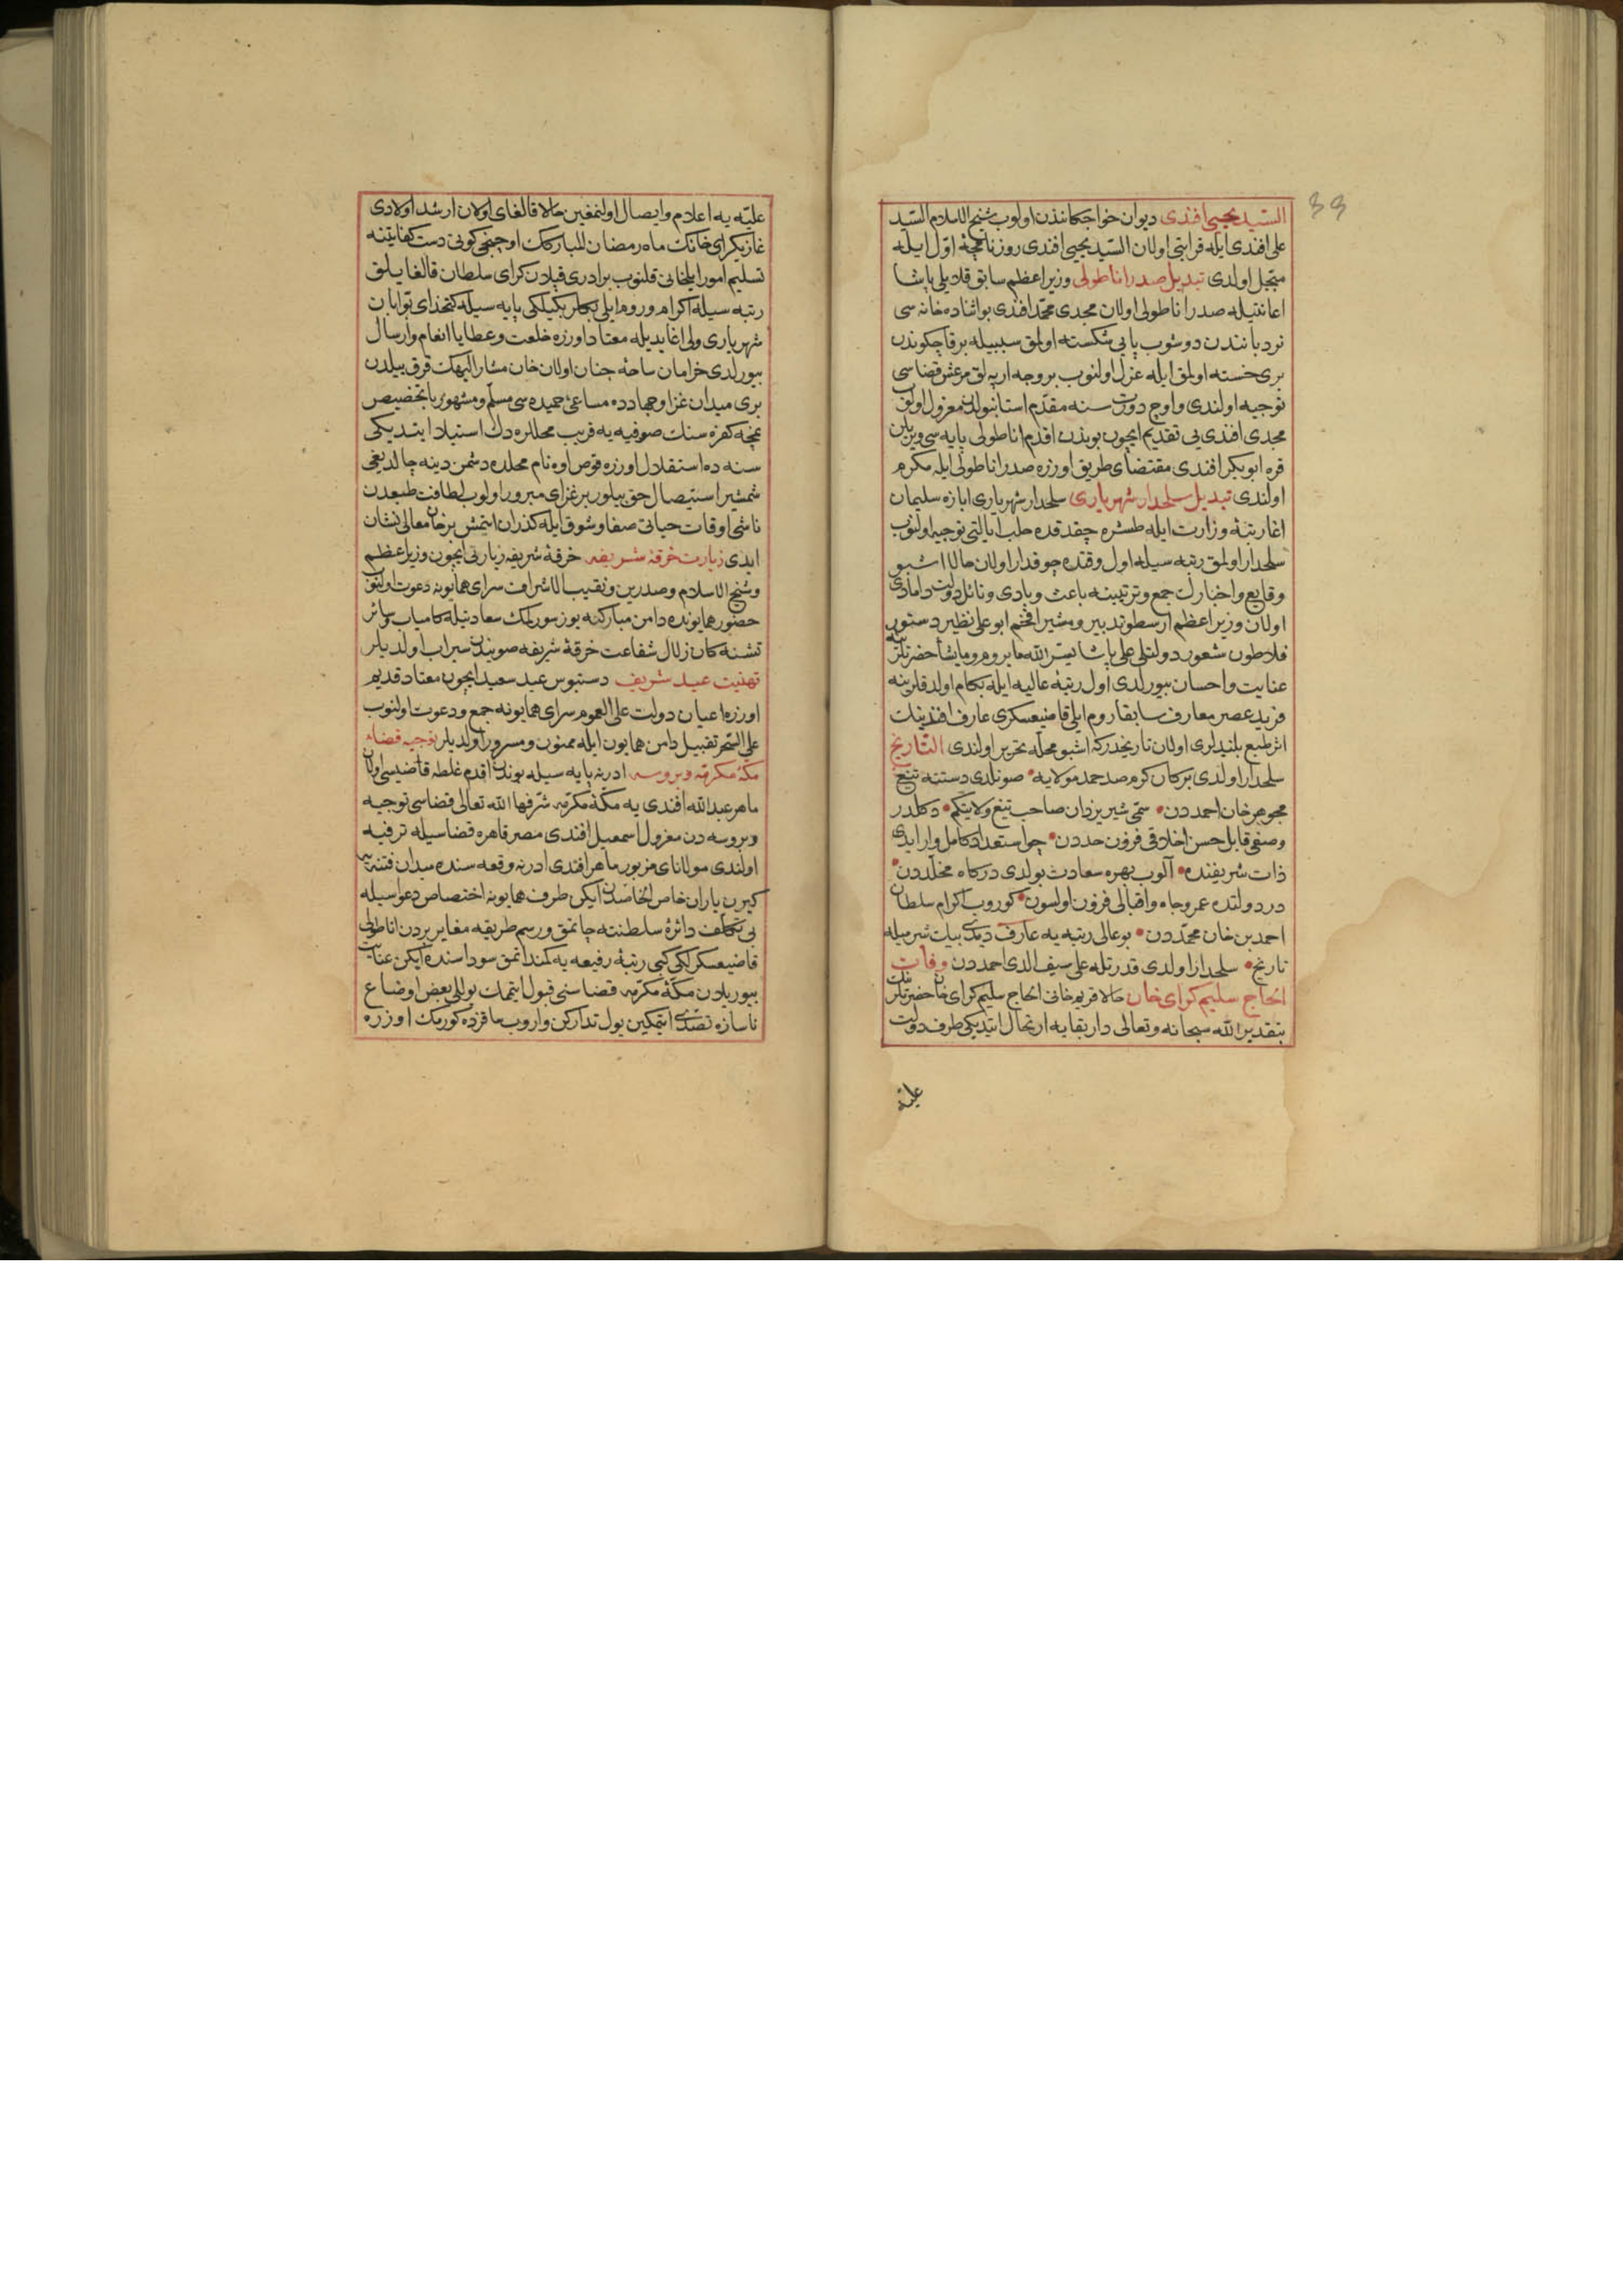 33
السّيد يحيى افندى ديوان خواجكانندن اولوب شيخ الاسلام السّيد
على افندى ايله قرابتى اولان السّيد يحيى افندى روزنامچۀ اوّل ايله
مبجّل اولدى تبديل صدر اناطولى وزير اعظم سابق قلايلى پاشا
اعانتيله صدر اناطولى اولان مجدى محمّد افندى بو اثناده خانه سى
نردباننندن دوشوب پايى شكسته اولمق سببيله بر قاچ كوندن
برى خسته اولمق ايله عزل اولنوب بر وجه ارپه لق مرعش قضاسى
توجيه اولندى و اوچ دورت سنه مقدّم استانبولدن معزول اولان
مجدى افندى يى تقديم ايچون بوندن اقدم اناطولى پايه سى ويريلن
قره ابو بكر افندى مقتضاى طريق اوزره صدر اناطولى ايله مكرم
اولندى تبديل سلحدار شهريارى سلحدار شهريارى ابازه سليمان
اغا رتبۀ وزارت ايله طشره چقدقده حلب ايالتى توجيه اولنوب
سلحدار اولمق رتبه سيله اول وقتده چوقدار اولان حالا اشبو
وقايع و اخبارك جمع و ترتيبنه باعث و بادى و نائل دولت دامادى
اولان وزير اعظم ارسطو تدبير و مشير افخم ابو على نظير دستور
فلاطون شعور دولتلى على پاشا يسّر الله ما يروم و ما يشا حضرتلرينه
عنايت و احسان بيورلدى اول رتبۀ عاليه ايله بكام اولدقلرينه
فريد عصر معارف سابقا روم ايلى قاضيعسكرى عارف افندينك
اثر طبع بلندلرى اولان تاريخدركه اشبو محلّه تحرير اولندى التّاريخ
سلحدار اولدى بر كان كرم صد حمد مولايه صونلدى دستنه تيغ
مجوهر خان احمددن سمىّ شير يزدان صاحب تيغ ولايتكم دكلدر
وصفى قابل حسن اخلاقى فزون حددن چو استعداد كامل وار ايدى
ذات شريفنده آلوب بهره سعادت بولدى دركاه مخلّددن
در دولتده عمر و جاه و اقبالى فزون اولسون كوروب اكرام سلطان
احمد بن خان محمّددن بو عالى رتبه يه عارف ديدى بيك شرميله
تاريخ سلحدار اولدى قدرتله على سيف الدى احمددن وفات
الحاج سليم كراى خان حالا قريم خانى الحاج سليم كراى خان حضرتلرينك
بتقدير الله سبحانه و تعالى دار بقايه ارتحال ايتديكى طرف دولت
عليّه
عليّه يه اعلام و ايصال اولنمغين حالا قالغاى اولان ارشد اولادى
غازيكراى خانك ماه رمضان المباركك اوچنجى كونى دست كفايتنه
تسليم امور ايلخانى قلنوب برادرى قپلان كراى سلطان قالغايلق
رتبه سيله اكرام و روم ايلى بكلربكيلكى پايه سيله كتخداى بوّابان
شهريارى ولى اغا يديله معتاد اوزره خلعت و عطايا انعام و ارسال
بيورلدى خرامان ساحۀ جنان اولان خان مشار اليهك قرق ييلدن
برى ميدان غزا و جهادده مساعئ حميده سى مسلّم و مشهور با تخصيص
نيچه كفره سنك صوفيه يه قريب محللره دك استيلا ايتديكى
سنه ده استقلال اوزره قوص اوه نام محلده دشمن دينه چالديغى
شمشير استيصال حق بيلور بر غزاى مبرور اولوب لطافت طبعدن
ناشى اوقات حياتى صفا و شوق ايله كذران ايتمش بر خان معالى نشان
ايدى زيارت خرقۀ شريفه خرقۀ شريفه زيارتى ايچون وزير اعظم
و شيخ الاسلام و صدرين و نقيب الاشراف سراى همايونه دعوت اولنوب
حضور همايونده دامن مباركنه يوز سورمك سعادتيله كامياب و سائر
تشنه كان زلال شفاعت خرقۀ شريفه صويندن سيراب اولديلر
تهنيت عيد شريف دستبوس عيد سعيد ايچون معتاد قديم
اوزره اعيان دولت على العموم سراى همايونه جمع و دعوت اولنوب
على السّحر تقبيل دامن همايون ايله ممنون و مسرور اولديلر توجيه قضاء
مكۀ مكرّمه و بروسه ادرنه پايه سيله بوندن اقدم غلطه قاضيسى اولان
ماهر عبدالله افندى يه مكۀ مكرّمه شرّفها الله تعالى قضاسى توجيه
و بروسه دن معزول اسمعيل افندى مصر قاهره قضاسيله ترفيه
اولندى مولاناى مزبور ماهر افندى ادرنه وقعه سنده ميدان فتنه يه
كيرن ياران خاص الخاصدن ايكن طرف همايونه اختصاص دعواسيله
بى تكلّف دائرۀ سلطنته چاتمق و رسم طريقه مغاير بردن اناطولى
قاضيعسكرلكى كبى رتبۀ رفيعه يه كمند اتمق سوداسنده ايكن عنايت
بيوريلان مكۀ مكرّمه قضاسنى قبول ايتمامك يوللى بعض اوضاع
ناسازه تصدّى ايتمكين يول تداركن و اروب ما فرده كورمك اوزره